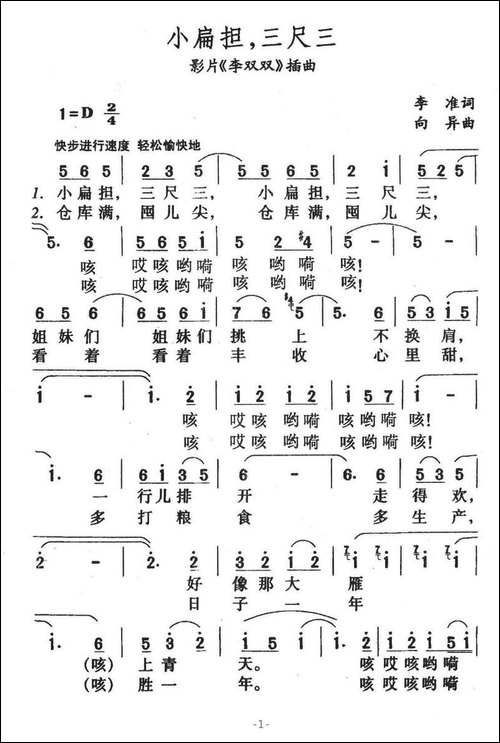 小扁担，三尺三
影片《李双双》插曲
1=D 2/4
李 准词
向 异曲
快步进行速度 轻松愉快地
5 6 5 | 2 3 5 | 5 6 5 | 2 i | 5 2 5
1. 小扁担， 三尺三， 小扁担， 三尺三，
2. 仓库满， 囤儿尖， 仓库满， 囤儿尖，
5. 6 | 5 6 5 i | 5 2 #4 | 5 - | 5 -
咳 哎咳哟嗬 咳哟嗬 咳！
咳 哎咳哟嗬 咳哟嗬 咳！
6 5 6 | 5 6 i | 6 5 | 5. 6 | 5 3 i 5
姐妹们 姐妹们 挑上 不换肩，
看着 看着 丰收 心里甜，
i - | i. 2 | i 2 i 2 | i 5 7 | i -
咳 哎咳哟嗬 咳哟嗬 咳！
咳 哎咳哟嗬 咳哟嗬 咳！
i. 6 | 6 i 3 5 | 6 - | 6. 6 | 5 3 5
一行儿排开 走得欢，
多打粮食 多生产，
2 - | 2. 2 | 3 2 i 2 | i i | i i
好像那大雁
日子一年
i. 6 | 5 3 2 | i 5 i | i. 2 | i 2 i 5 i
（咳）上青天。 咳 哎咳哟嗬
（咳）胜一年。 咳 哎咳哟嗬
-1-